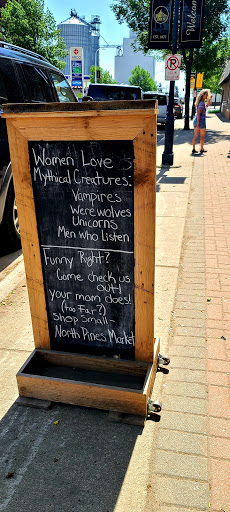 Welcome
Women Love
Mythical Creatures:
Vampires
Werewolves
Unicorns
Men who Listen
Funny Right?
Come check us
out!
your mom does!
(to far?)
Shop Small-
North Pines Market